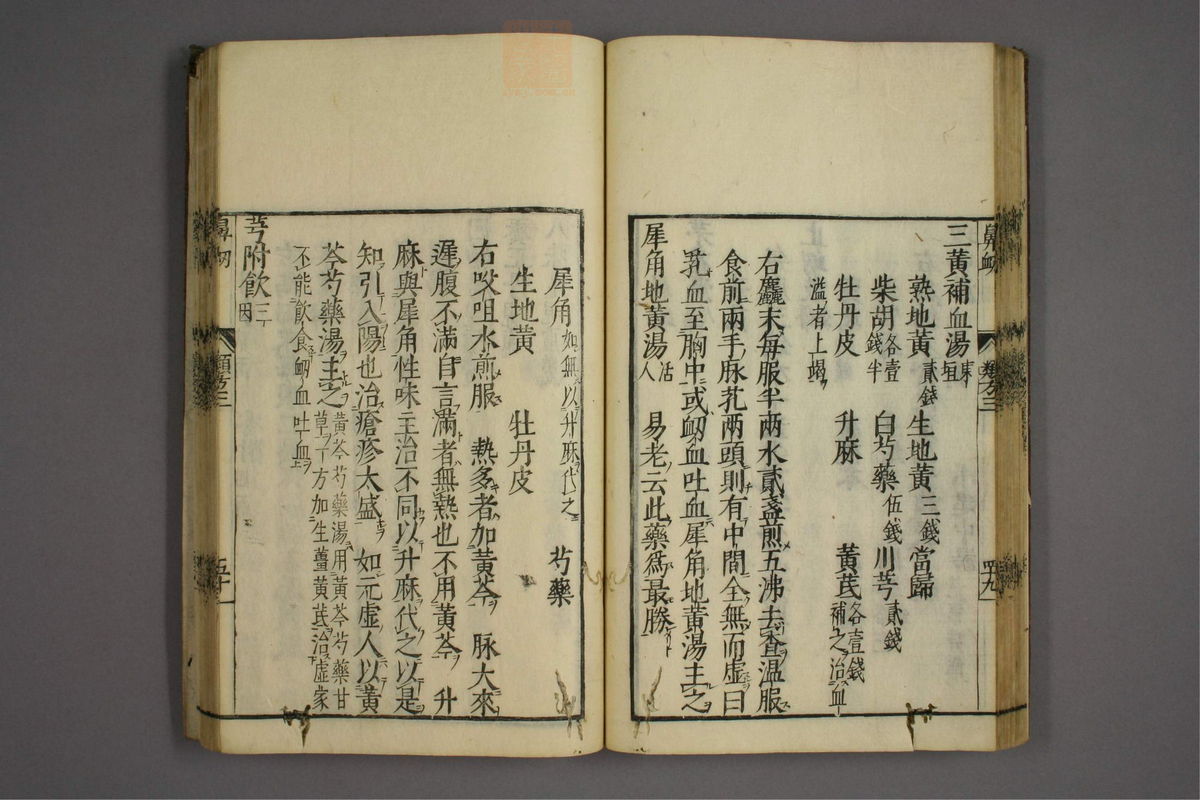 鼻衂 類方三 四十九
三黃補血湯東垣
熟地黃貳錢 生地黃三錢 當歸
柴胡各壹錢半 白芍藥伍錢 川芎貳錢
牡丹皮 升麻 黃芪各壹錢補之治血
溢者上竭
右麤末每服半兩水貳盞煎五沸去查溫服
食前兩手脉芤兩頭則有中間全無而虛曰
芤血至胸中或衂血吐血犀角地黃湯主之
犀角地黃湯活人 易老云此藥爲最勝
犀角如無以升麻代之 芍藥
生地黃 牡丹皮
右㕮咀水煎服 熱多者加黃芩 脉大來
遲腹不滿自言滿者無熱也不用黃芩 升
麻與犀角性味主治不同以升麻代之以是
知引入陽也治瘡疹太盛 如元虛人以黃
芩芍藥湯主之黃芩芍藥湯用黃芩芍藥甘草下方加生薑黃芪治虛家
不能飲食衂血吐血
芎附飲三因
鼻衂 類方三 五十